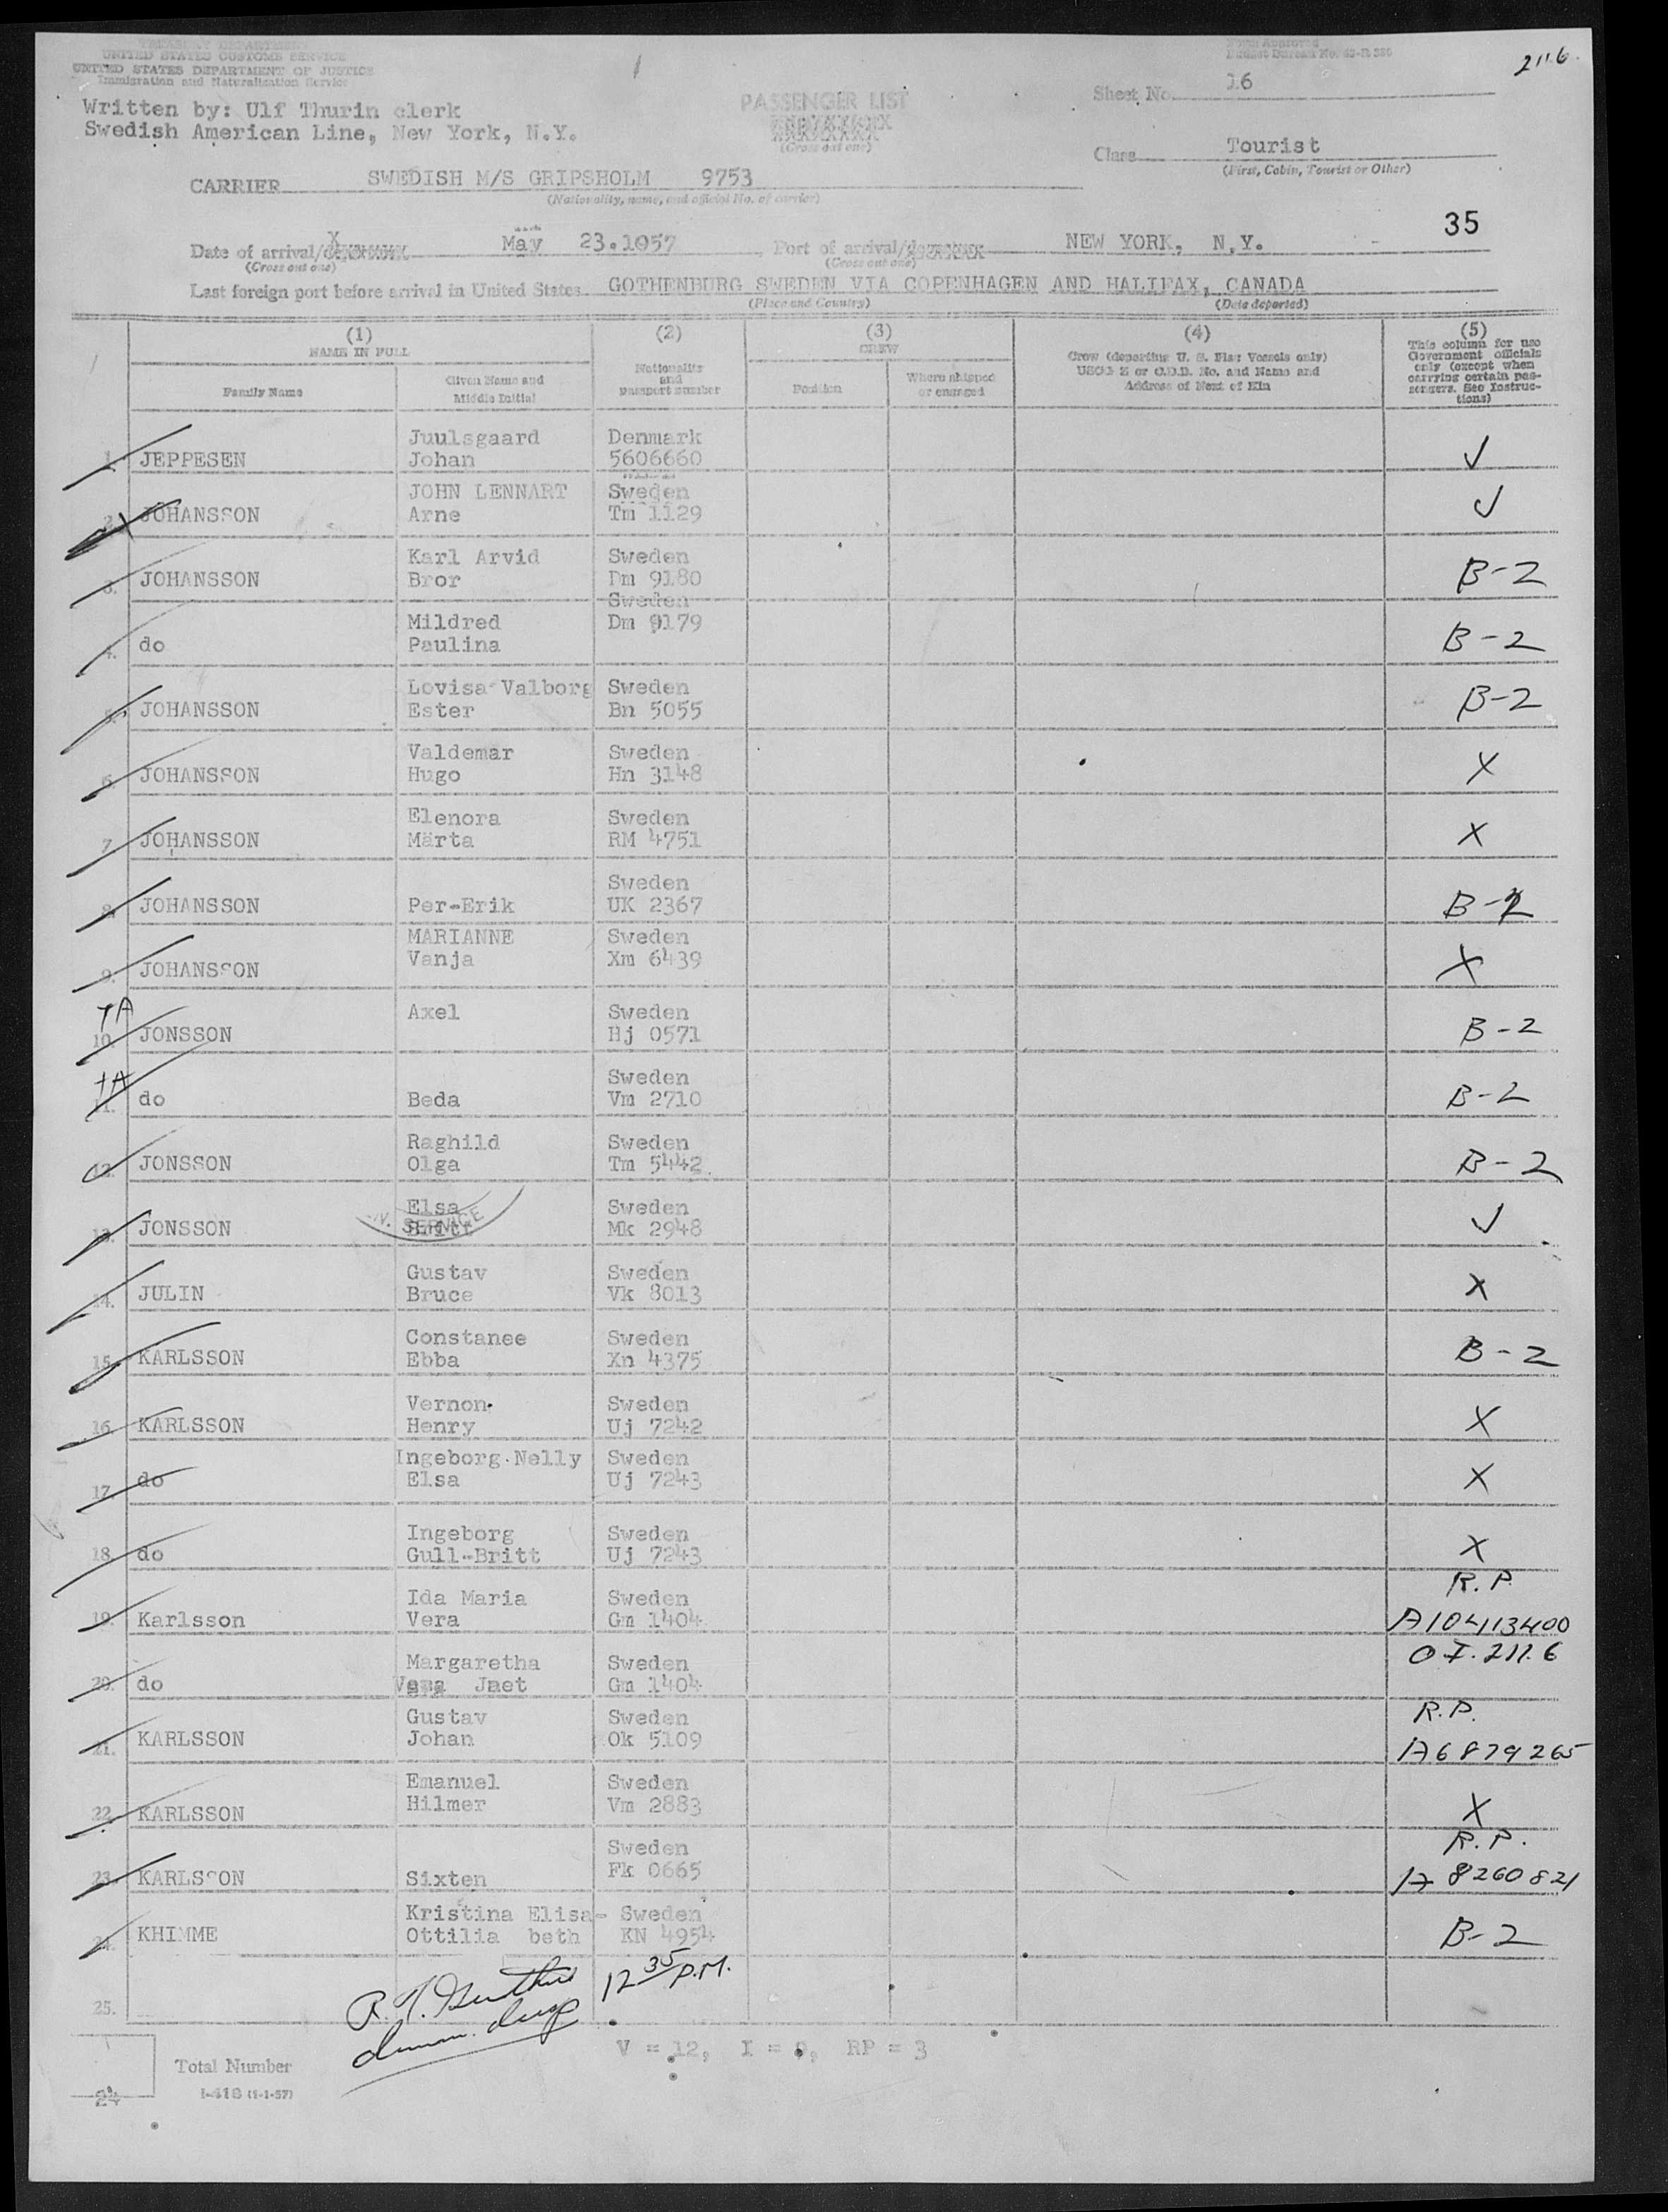 TREASURY DEPARTMENT
UNITED STATES CUSTOMS SERVICE
UNITED STATES DEPARTMENT OF JUSTICE
Immigration and Naturalization Service
Form Approved
Budget Bureau No. 43-R 389
211.6
Written by: Ulf Thurin clerk
Swedish American Line, New York, N.Y.
PASSENGER LIST
(Cross out one)
Sheet No. 16
Class Tourist
(First, Cabin, Tourist or Other)
CARRIER SWEDISH M/S GRIPSHOLM 9753
(Nationality, name, and official No. of carrier)
35
Date of arrival/ May 23.1957, Port of arrival/ NEW YORK, N.Y.
(Cross out one) (Cross out one)
Last foreign port before arrival in United States GOTHENBURG SWEDEN VIA COPENHAGEN AND HALIFAX, CANADA
(Place and Country) (Date departed)
(1) (2) (3) (4) (5)
NAME IN FULL
Family Name
Given Name and Middle Initial
Nationality and passport number
CREW
Position
Where shipped or engaged
Crew (departing U. S. Flag Vessels only)
USCG Z or C.D.B. No. and Name and
Address of Next of Kin
This column for use
Government officials
only (except when
carrying certain pas-
sengers. See Instruc-
tions)
Juulsgaard Denmark
1. JEPPESEN Johan 5606660 ✓
JOHN LENNART Sweden
2. JOHANSSON Arne Tm 1129 ✓
Karl Arvid Sweden
3. JOHANSSON Bror Dm 9180 B-2
Sweden
Mildred Dm 9179
4. do Paulina B-2
Lovisa Valborg Sweden
5. JOHANSSON Ester Bn 5055 B-2
Valdemar Sweden
6. JOHANSSON Hugo Hn 3148 X
Elenora Sweden
7. JOHANSSON Märta RM 4751 X
Sweden
8. JOHANSSON Per-Erik UK 2367 B-2
MARIANNE Sweden
9. JOHANSSON Vanja Xm 6439 X
TA
Axel Sweden
10. JONSSON Hj 0571 B-2
TA
Sweden
11. do Beda Vm 2710 B-2
Raghild Sweden
12. JONSSON Olga Tm 5442 B-2
Elsa Sweden
13. JONSSON Britt Mk 2948 ✓
SERVICE
Gustav Sweden
14. JULIN Bruce Vk 8013 X
Constanee Sweden
15. KARLSSON Ebba Xn 4375 B-2
Vernon Sweden
16. KARLSSON Henry Uj 7242 X
Ingeborg Nelly Sweden
17. do Elsa Uj 7243 X
Ingeborg Sweden
18. do Gull-Britt Uj 7243 X
Ida Maria Sweden R.P.
19. Karlsson Vera Gm 1404 A10413400
Margaretha Sweden O I. 211.6
20. do Jaet Gm 1404
Gustav Sweden R.P.
21. KARLSSON Johan Ok 5109 A6879265
Emanuel Sweden
22. KARLSSON Hilmer Vm 2883 X
Sweden R.P.
23. KARLSSON Sixten Fk 0665 A 8260821
Kristina Elisa- Sweden
24. KHIMME Ottilia beth KN 4954 B-2
25.
12 35 P.M.
V = 12, I = 9, RP = 3
Total Number
24
I-418 (1-1-57)